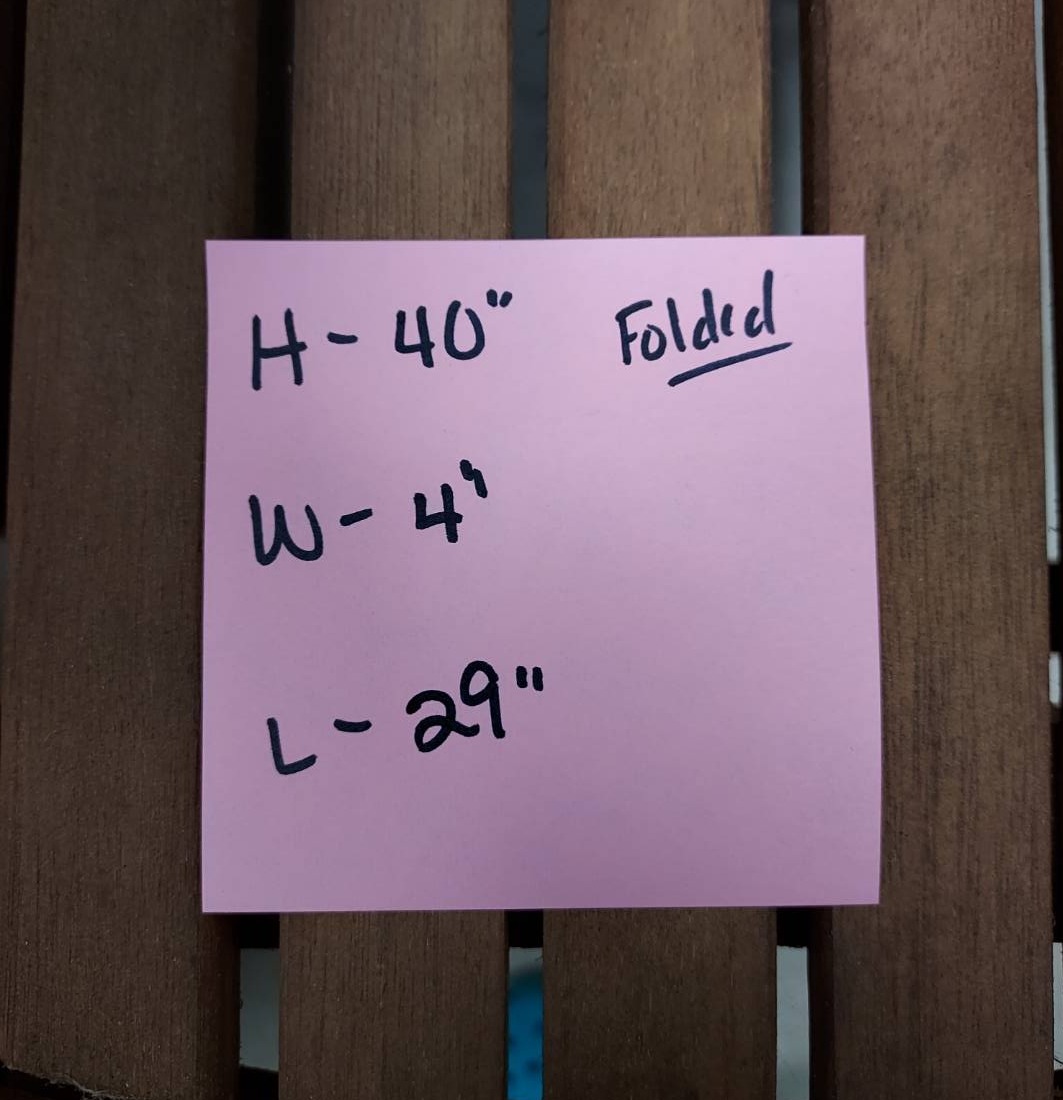 H - 40" Folded
W - 4"
L - 29"